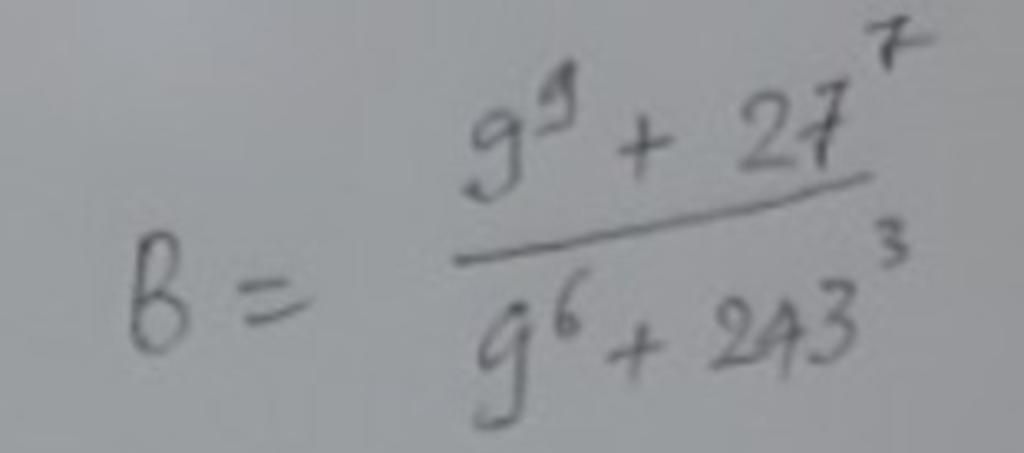 B = \frac{9^9 + 27^7}{9^6 + 243^3}